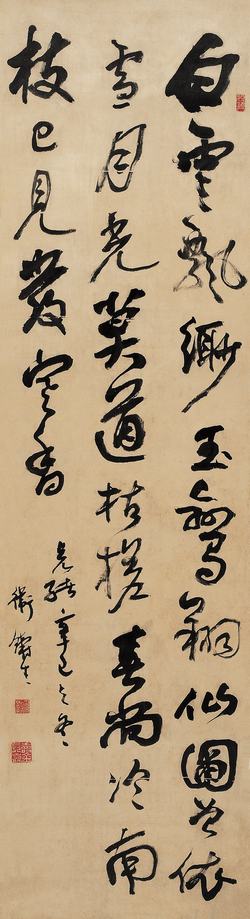 白雲飄緲玉鸞翔仙圖曾依
雪月光莫道枯槎春尚冷南
枝已見發寒香
光緒辛巳之冬
衛鑄生